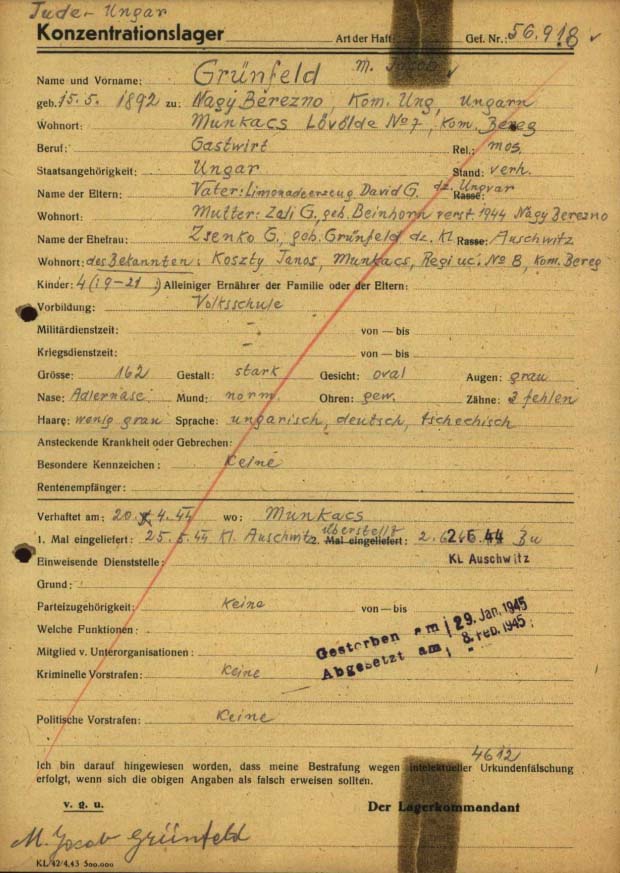 Jude- Ungar
Konzentrationslager Art der Haft: Gef. Nr.: 56.918
Name und Vorname: Grünfeld M. Jacob
geb. 15.5. 1892 zu: Nagy Berezno, Kom. Ung, Ungarn
Wohnort: Munkacs Lövölde No 7, Kom. Bereg
Beruf: Gastwirt Rel.: mos.
Staatsangehörigkeit: Ungar Stand: verh.
Name der Eltern: Vater: Limonadeerzeug David G. dz. Ungvar Rasse:
Wohnort: Mutter: Zali G., geb. Beinhorn verst 1944 Nagy Berezno
Name der Ehefrau: Zsenko G., geb. Grünfeld dz. Kl. Rasse: Auschwitz
Wohnort: des Bekannten: Koszty Janos, Munkacs, No 8, Kom. Bereg
Kinder: 4 (19-21) Alleiniger Ernährer der Familie oder der Eltern:
Vorbildung: Volksschule
Militärdienstzeit: - von — bis
Kriegsdienstzeit: - von — bis
Grösse: 162 Gestalt: stark Gesicht: oval Augen: grau
Nase: Adlernase Mund: norm. Ohren: gew. Zähne: 3 fehlen
Haare: wenig grau Sprache: ungarisch, deutsch, tschechisch
Ansteckende Krankheit oder Gebrechen:
Besondere Kennzeichen: keine
Rentenempfänger:
Verhaftet am: 20. 4. 44 wo: Munkacs
1. Mal eingeliefert: 25.5.44 Kl. Auschwitz überstellt 2. Mal eingeliefert: 2.6. 2.6.44 Bu
Einweisende Dienststelle: KL Auschwitz
Grund:
Parteizugehörigkeit: keine von — bis
Welche Funktionen:
Gestorben am 29. Jan. 1945
Mitglied v. Unterorganisationen: Abgesetzt am 8. Feb. 1945
Kriminelle Vorstrafen: keine
Politische Vorstrafen: keine
4612
Ich bin darauf hingewiesen worden, dass meine Bestrafung wegen intelektueller Urkundenfälschung
erfolgt, wenn sich die obigen Angaben als falsch erweisen sollten.
v. g. u. Der Lagerkommandant
M. Jacob Grünfeld
KL/42/4.43 500.000